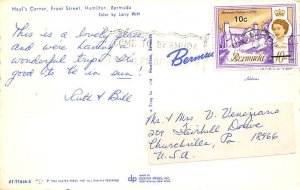 Heyl's Corner, Front Street, Hamilton, Bermuda
Color by Larry Witt
This is a lovely place
and were having a
wonderful trip. It's
good to be in sun.
Ruth & Bill
10c
BERMUDA
Bermuda
Address
Mr. & Mrs. V. Veneziano
229 Fairhill Drive
Churchville, Pa 18966
U.S.A.
dp